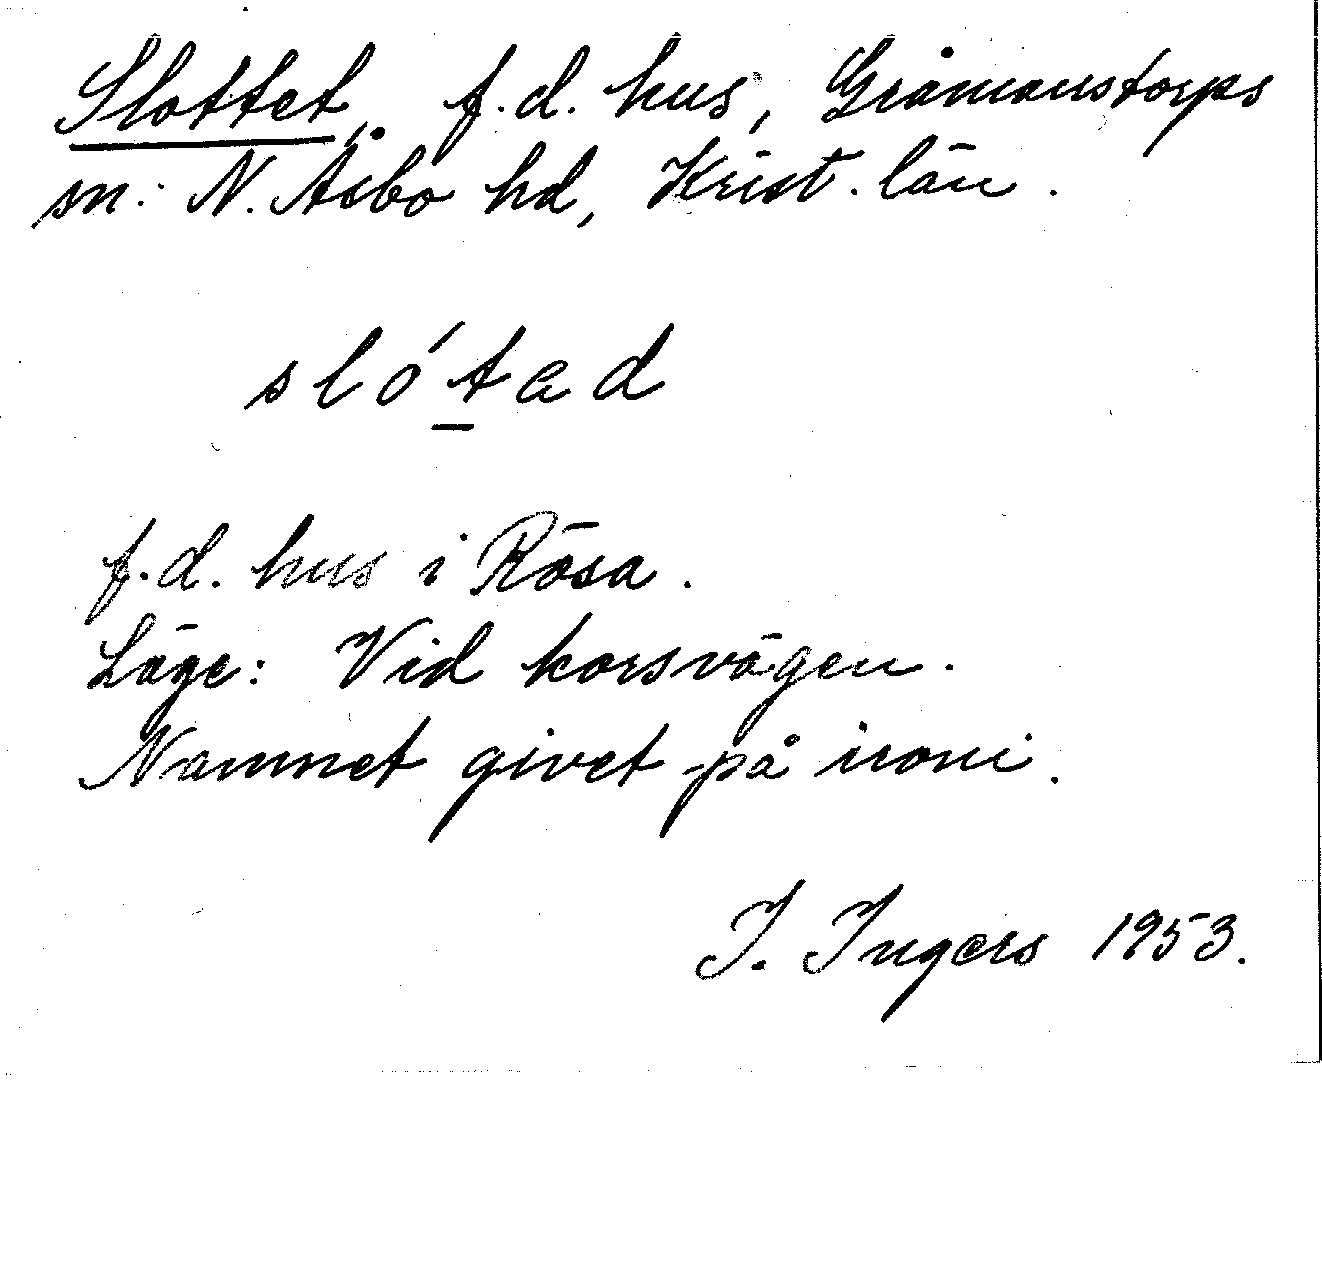 Slottet, f.d. hus, Gråmanstorps
sn. N. Åsbo hd, Krist. län.
slótad
f.d. hus i Rösa.
Läge: Vid korsvägen.
Namnet givet på ironi.
I. Ingers 1953.